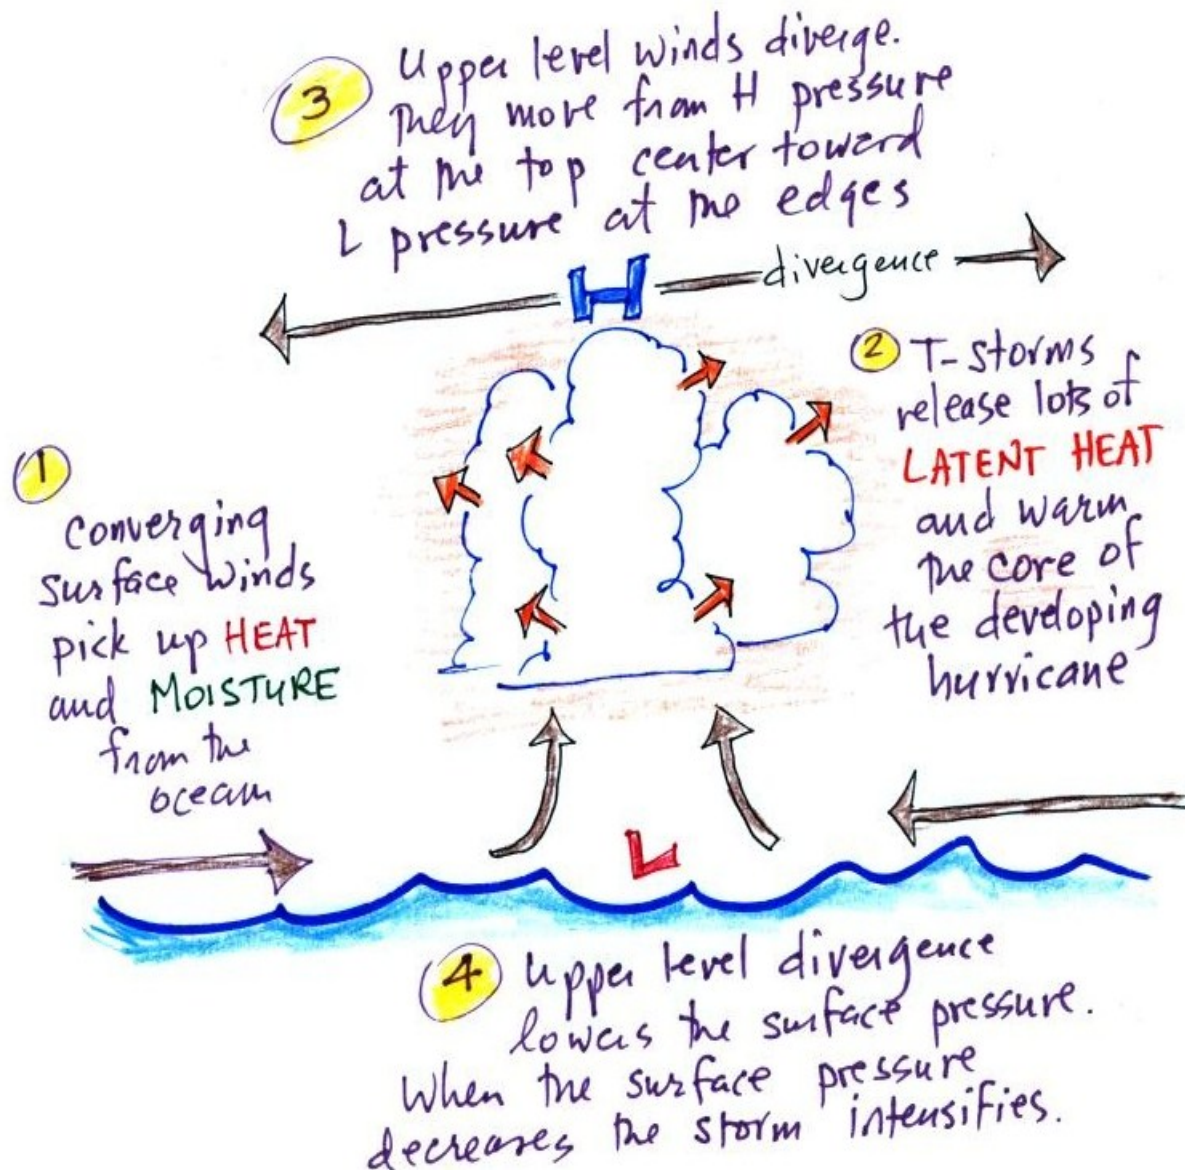 3
Upper level winds diverge.
They move from H pressure
at the top center toward
L pressure at the edges
H
divergence
2
T-storms
release lots of
LATENT HEAT
and warm
the core of
the developing
hurricane
1
Converging
surface winds
pick up HEAT
and MOISTURE
from the
ocean
L
4
Upper level divergence
lowers the surface pressure.
When the surface pressure
decreases the storm intensifies.